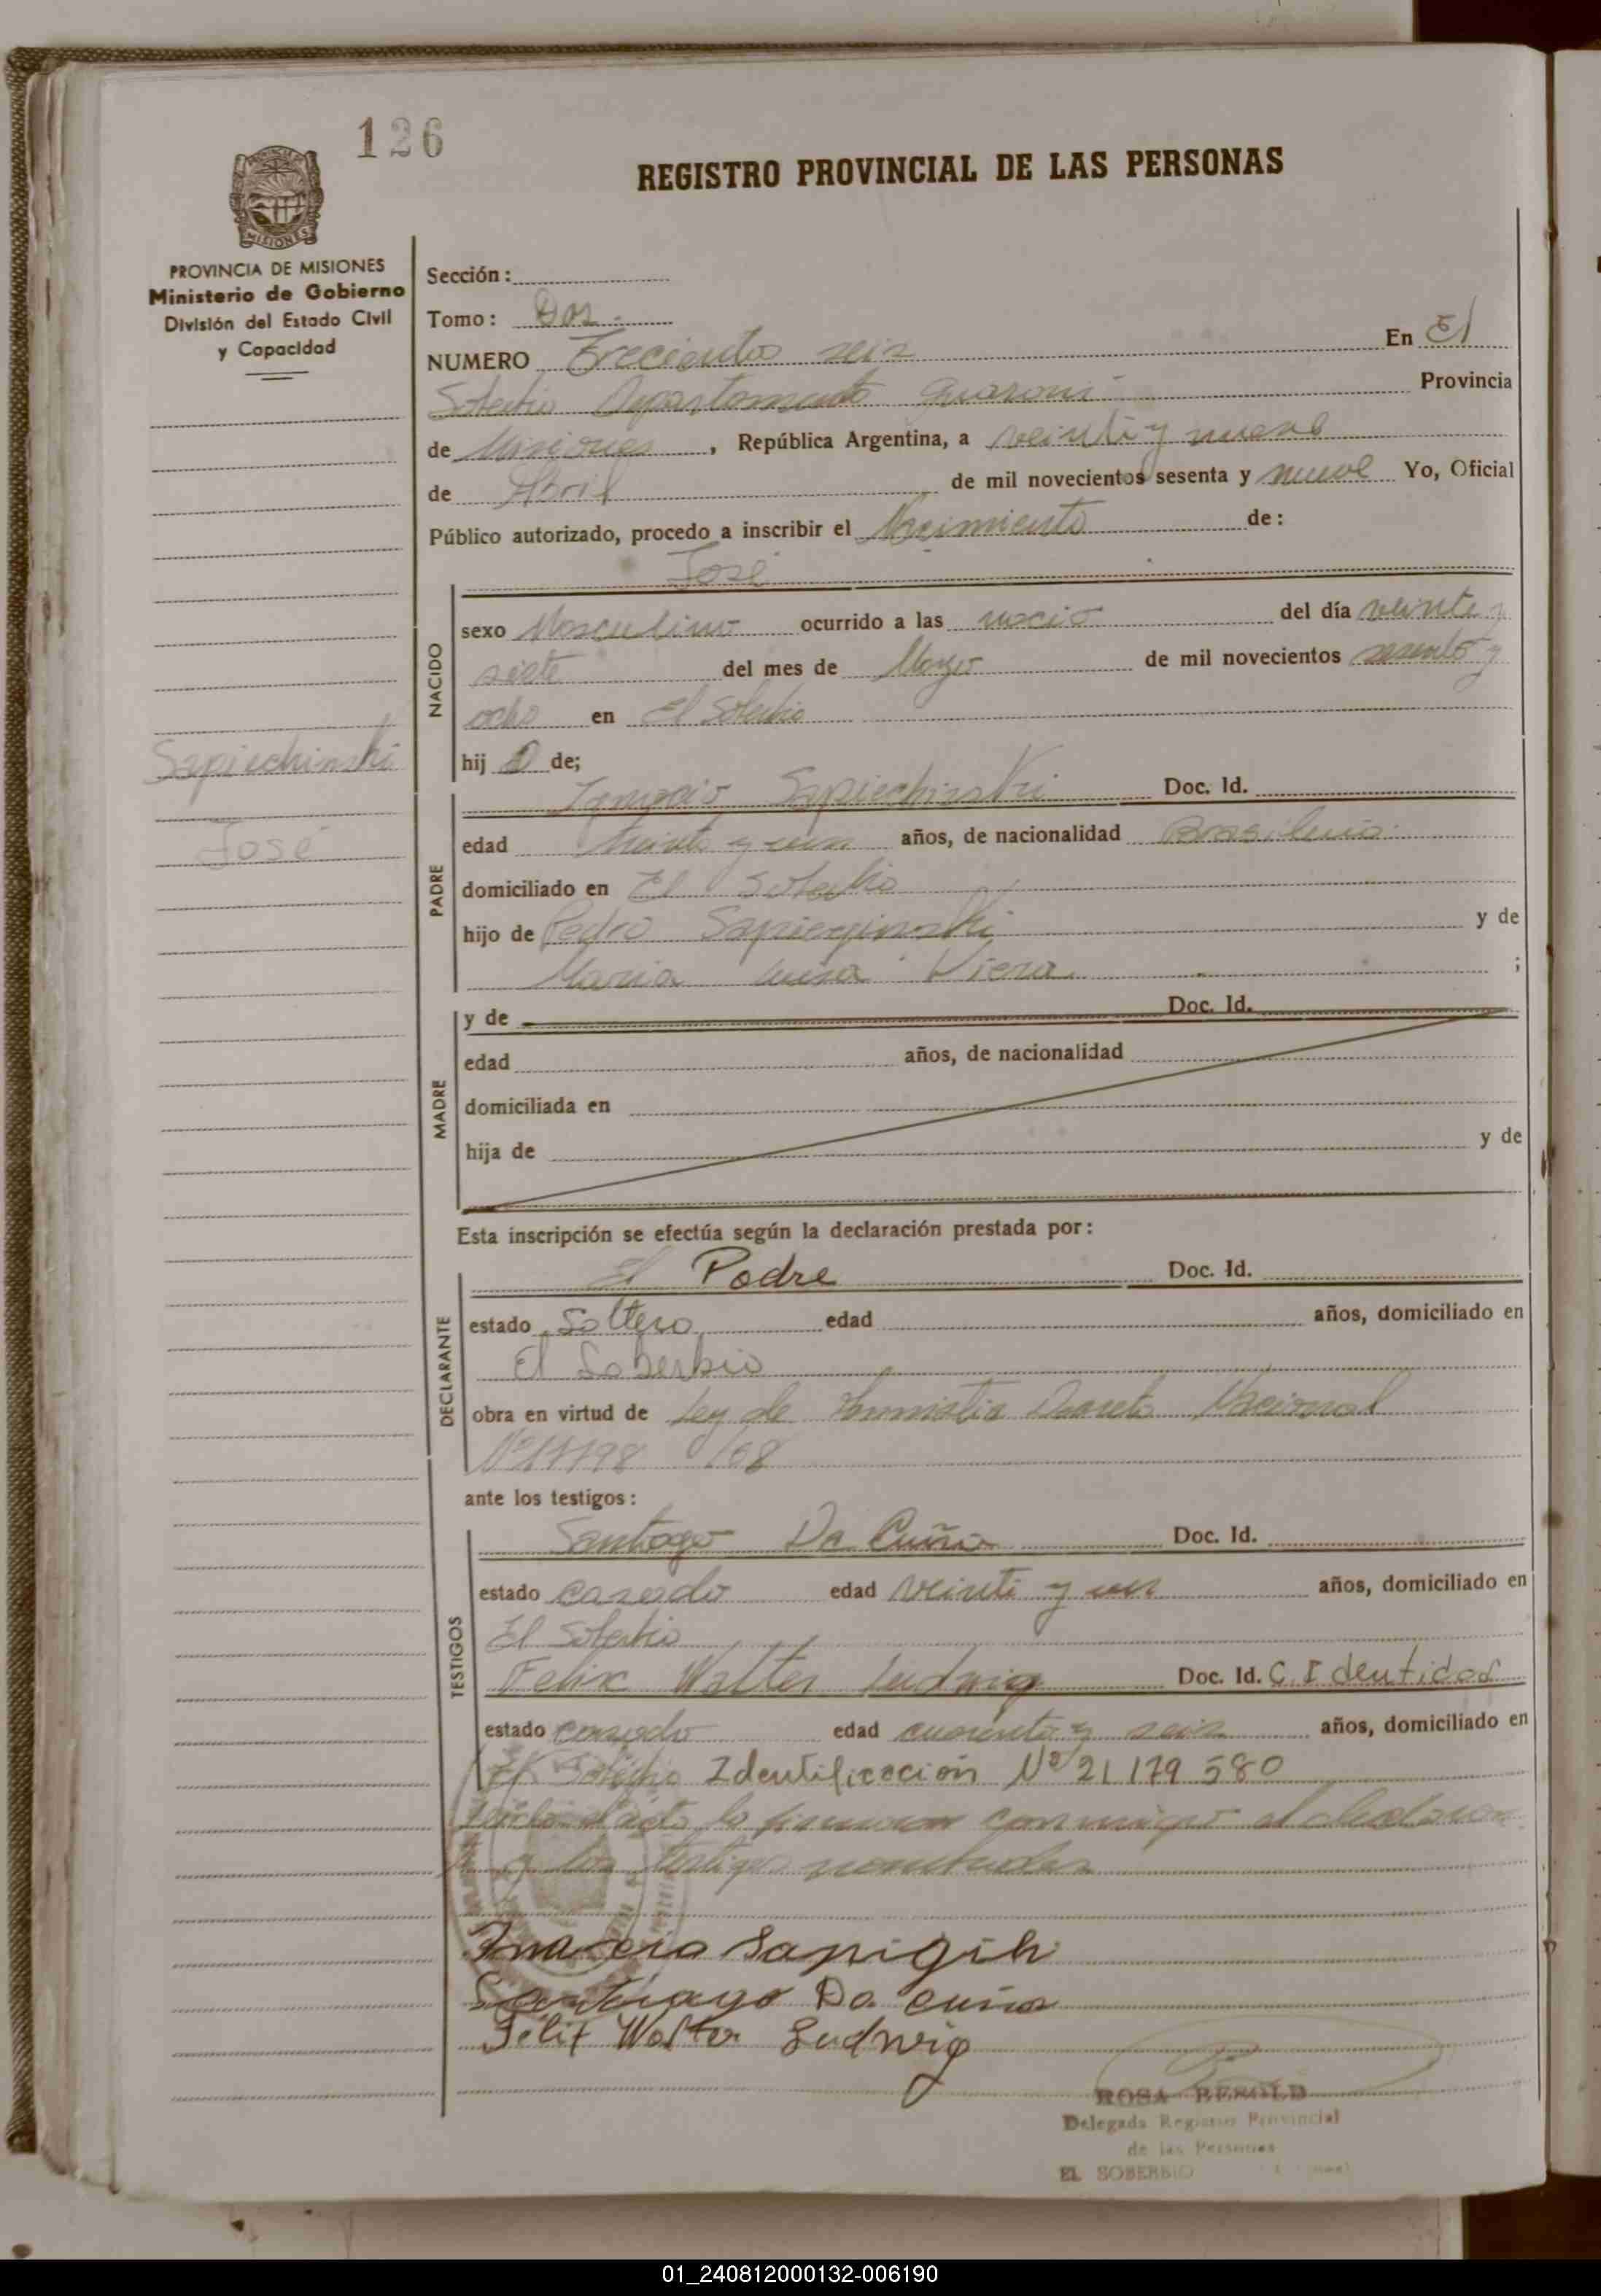 126
REGISTRO PROVINCIAL DE LAS PERSONAS
PROVINCIA DE MISIONES
MISIONES
PROVINCIA DE MISIONES
Ministerio de Gobierno
División del Estado Civil
y Capacidad
Sección:
Tomo: Dos
NUMERO Treciento seis En El
Soberbio Departamento Guarani Provincia
de Misiones, República Argentina, a veinti y nueve
de Abril de mil novecientos sesenta y nueve Yo, Oficial
Público autorizado, procedo a inscribir el Nacimiento de:
José
NACIDO
sexo Masculino ocurrido a las del día veinte y
siete del mes de Mayo de mil novecientos sesenta y
ocho en El Soberbio
hij o de;
Sapiechinski
José
PADRE
Ignacio Sapiechinski Doc. Id.
edad treinta y un años, de nacionalidad Brasilera
domiciliado en El Soberbio
hijo de Pedro Sapierginski y de
Maria Luisa Viera ;
MADRE
y de Doc. Id.
edad años, de nacionalidad
domiciliada en
hija de y de
Esta inscripción se efectúa según la declaración prestada por:
DECLARANTE
El Padre Doc. Id.
estado Soltero edad años, domiciliado en
El Soberbio
obra en virtud de Ley de Amnistia Decreto Nacional
/68
ante los testigos:
TESTIGOS
Santiago Da Cuña Doc. Id.
estado casado edad veinti y un años, domiciliado en
El Soberbio
Felix Walter Ludwig Doc. Id. C. Identidad
estado casado edad cuarenta y seis años, domiciliado en
El Soberbio Identificación Nº 21 179 580
el acta la firmaron conmigo el declaran
te y los testigos nombrados
Inascio Sapigih
Santiago Da cuña
Felix Walter Ludwig
ROSA BESOLD
Delegada Registro Provincial
de las Personas
EL SOBERBIO
01_240812000132-006190